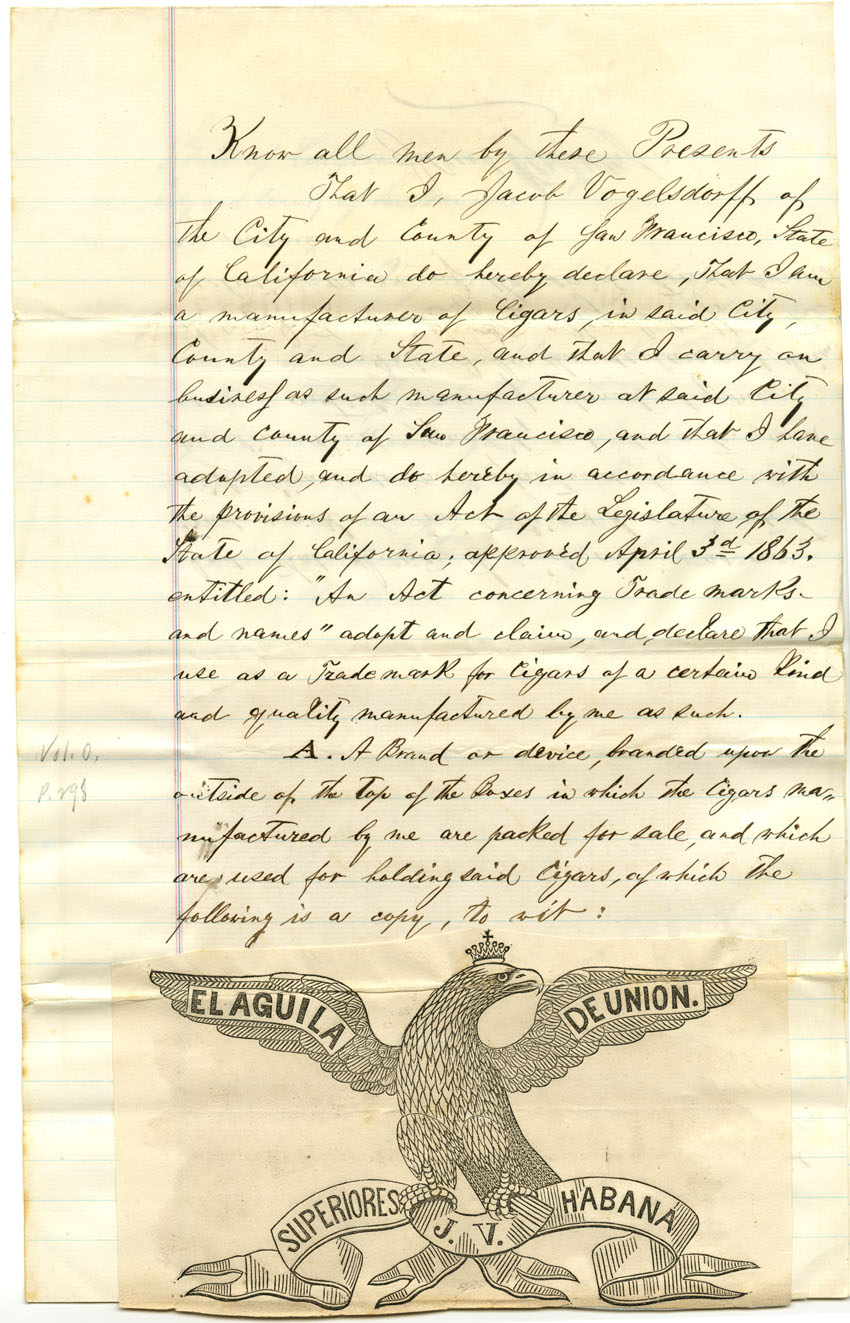 Know all men by these Presents
That I, Jacob Vogelsdorff of
the City and County of San Francisco, State
of California do hereby declare, That I am
a manufacturer of Cigars, in said City,
County and State, and that I carry on
business as such manufacturer at said City
and County of San Francisco, and that I have
adopted, and do hereby in accordance with
the provisions of an Act of the Legislature of the
State of California; approved April 3d 1863.
entitled: "An Act concerning Trade marks-
and names" adopt and claim, and declare that I
use as a Trade mark for Cigars of a certain kind
and quality manufactured by me as such.
Vol. O.
A. A Brand or device, branded upon the
P. 298
outside of the top of the Boxes in which the Cigars ma=
nufactured by me are packed for sale, and which
are used for holding said Cigars, of which the
following is a copy, to wit:
EL AGUILA DE UNION.
SUPERIORES J. V. HABANA